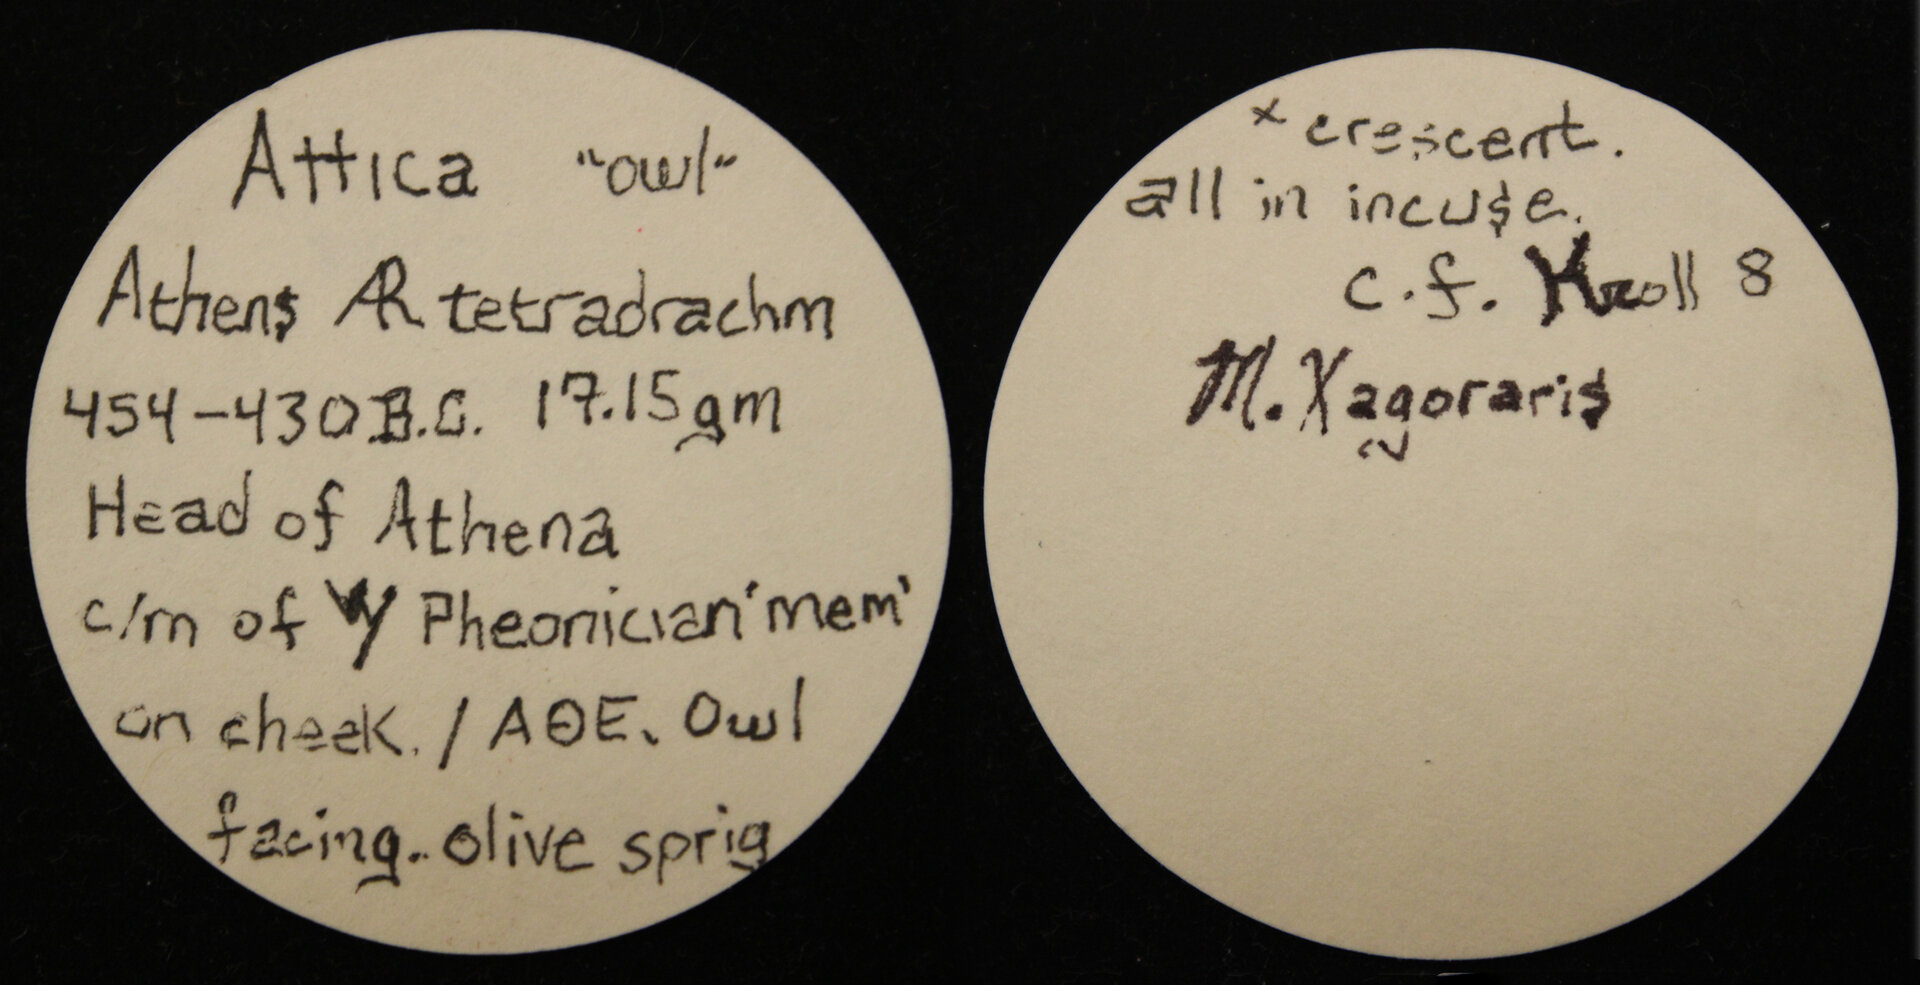 Attica "owl"
Athens AR tetradrachm
454-430 B.C. 17.15gm
Head of Athena
c/m of 𐤌 Pheonician 'mem'
on cheek. / ΑΘΕ. Owl
facing. olive sprig
x crescent.
all in incuse.
c.f. Kroll 8
M. Xagoraris